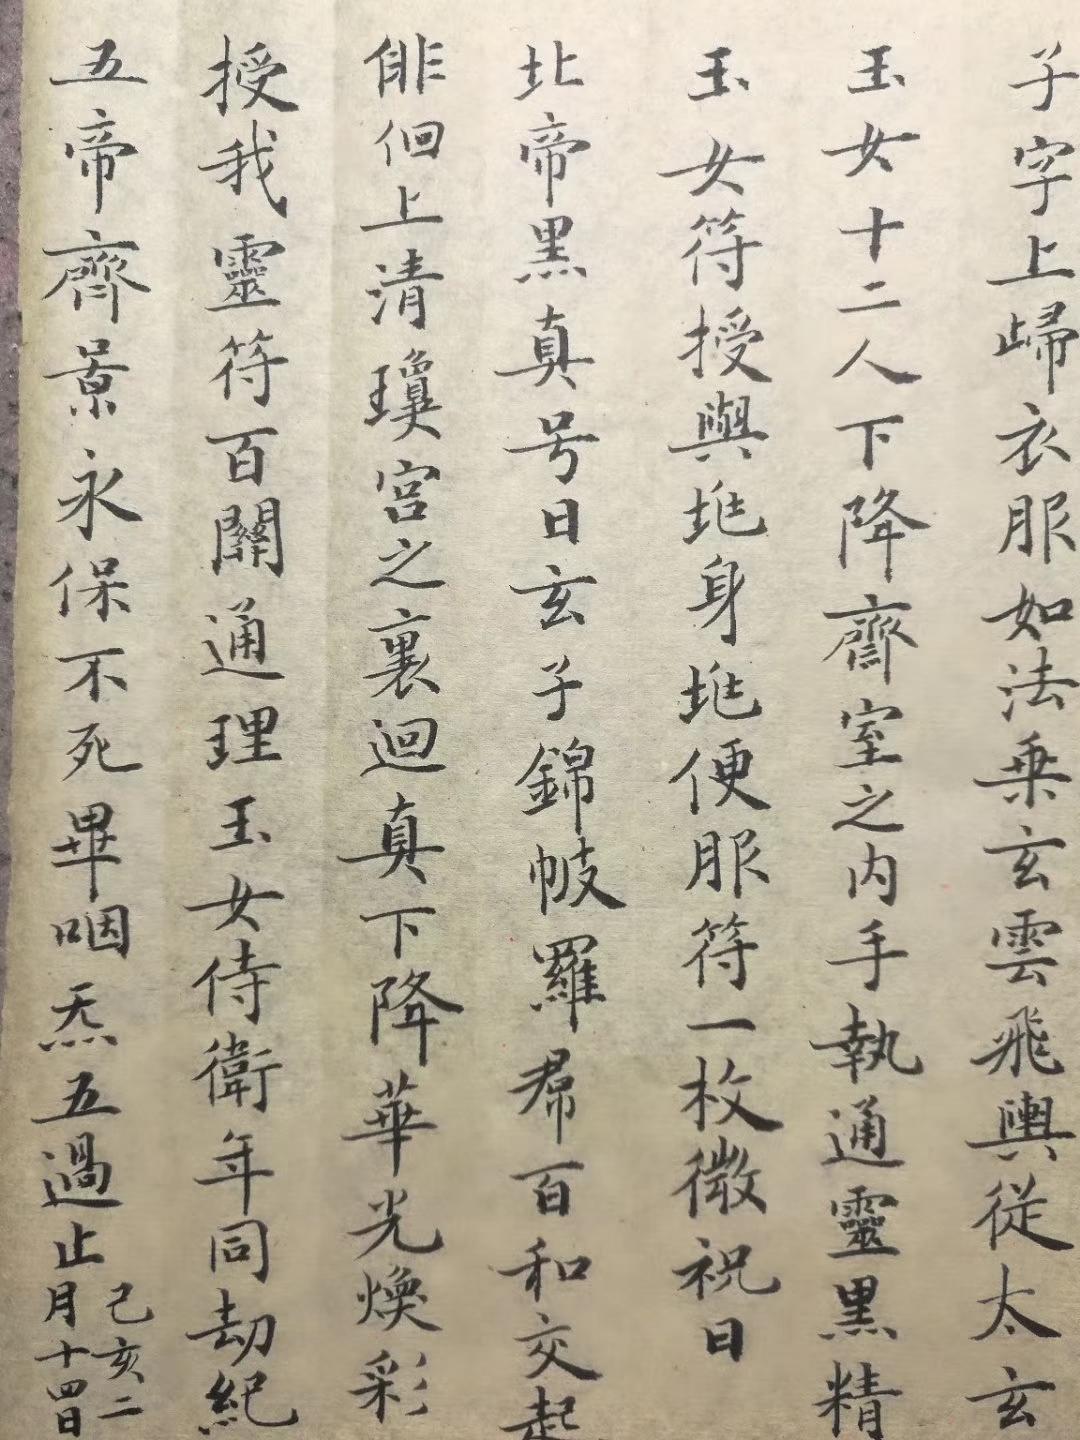 子字上歸衣服如法乗玄雲飛輿従太玄
玉女十二人下降齊室之内手執通靈黒精
玉女符授與兆身兆便服符一枚微祝曰
北帝黒真号曰玄子錦帔羅帬百和交起
俳佪上清瓊宮之裏迴真下降華光煥彩
授我靈符百關通理玉女侍衛年同劫紀
五帝齊景永保不死畢咽炁五過止
己亥二
月十四日